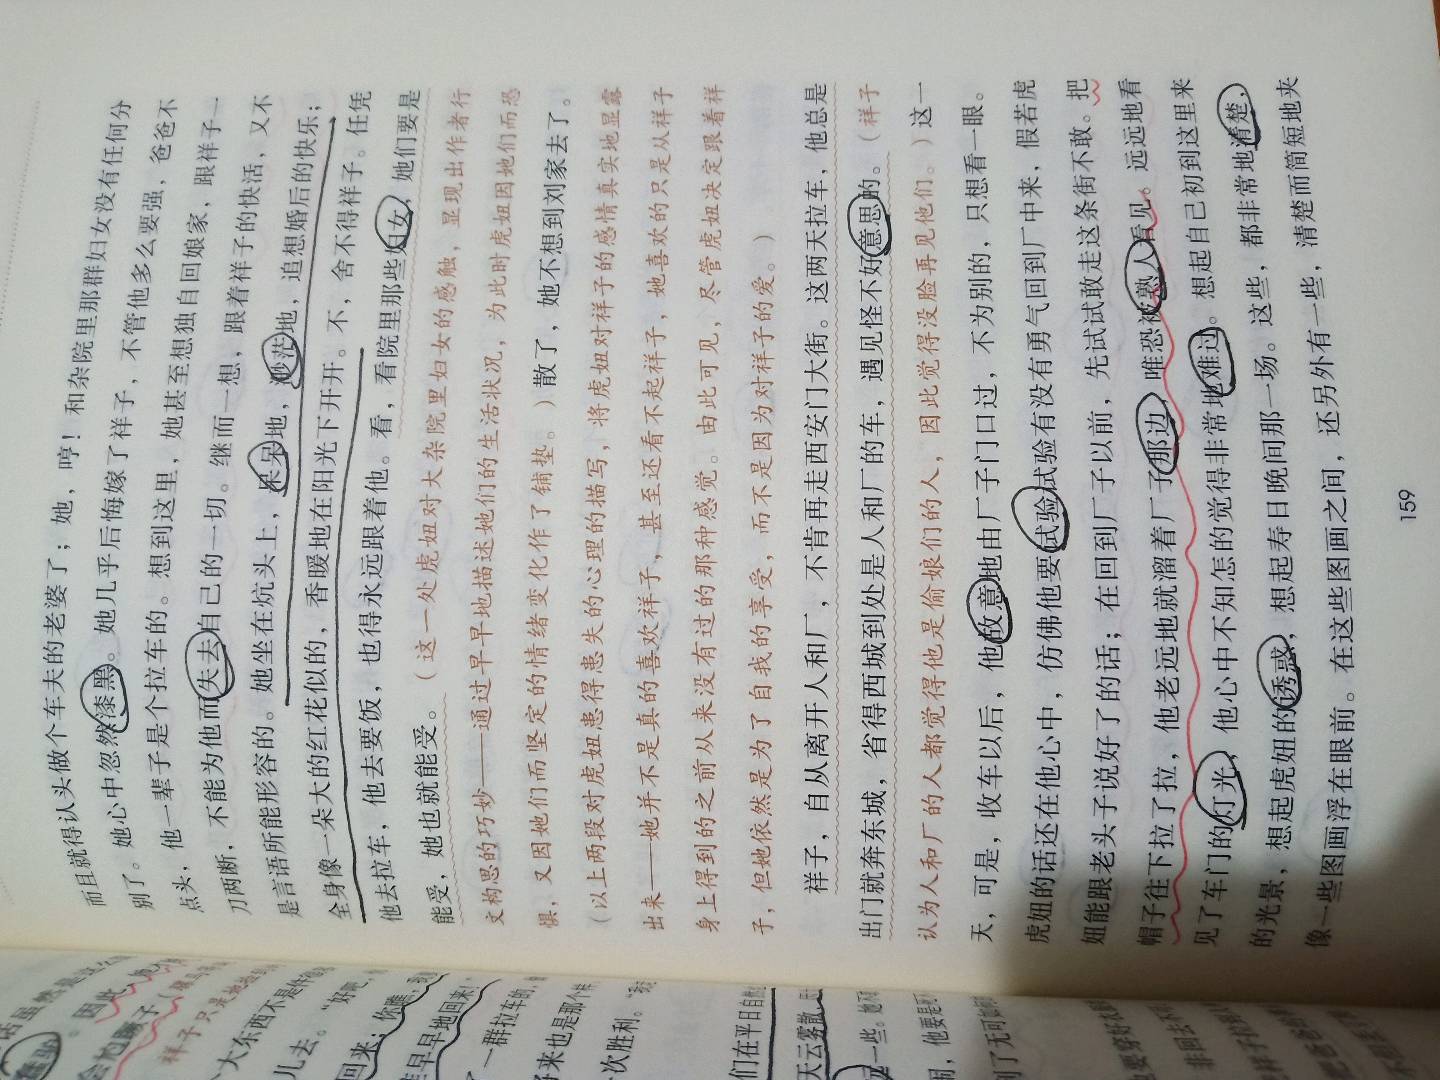 而且就得认头做个车夫的老婆了；她，哼！和杂院里那群妇女没有任何分
别了。她心中忽然漆黑。她几乎后悔嫁了祥子，不管他多么要强，爸爸不
点头，他一辈子是个拉车的。想到这里，她甚至想独自回娘家，跟祥子一
刀两断，不能为他而失去自己的一切。继而一想，跟着祥子的快活，又不
是言语所能形容的。她坐在炕头上，呆呆地，渺茫地，追想婚后的快乐；
全身像一朵大的红花似的，香暖地在阳光下开开。不，舍不得祥子。任凭
他去拉车，他去要饭，也得永远跟着他。看，看院里那些妇女，她们要是
能受，她也就能受。（这一处虎妞对大杂院里妇女的感触，显现出作者行
文构思的巧妙——通过早早地描述她们的生活状况，为此时虎妞因她们而恐
惧，又因她们而坚定的情绪变化作了铺垫。）散了，她不想到刘家去了。
（以上两段对虎妞患得患失的心理的描写，将虎妞对祥子的感情真实地显露
出来——她并不是真的喜欢祥子，甚至还看不起祥子，她喜欢的只是从祥子
身上得到的之前从来没有过的那种感觉。由此可见，尽管虎妞决定跟着祥
子，但她依然是为了自我的享受，而不是因为对祥子的爱。）
祥子，自从离开人和厂，不肯再走西安门大街。这两天拉车，他总是
出门就奔东城，省得西城到处是人和厂的车，遇见怪不好意思的。（祥子
认为人和厂的人都觉得他是偷娘们的人，因此觉得没脸再见他们。）这一
天，可是，收车以后，他故意地由厂子门口过，不为别的，只想看一眼。
虎妞的话还在他心中，仿佛他要试验试验有没有勇气回到厂中来，假若虎
妞能跟老头子说好了的话；在回到厂子以前，先试试敢走这条街不敢。把
帽子往下拉了拉，他老远地就溜着厂子那边，唯恐被熟人看见。远远地看
见了车门的灯光，他心中不知怎的觉得非常地难过。想起自己初到这里来
的光景，想起虎妞的诱惑，想起寿日晚间那一场。这些，都非常地清楚，
像一些图画浮在眼前。在这些图画之间，还另外有一些，清楚而简短地夹
159